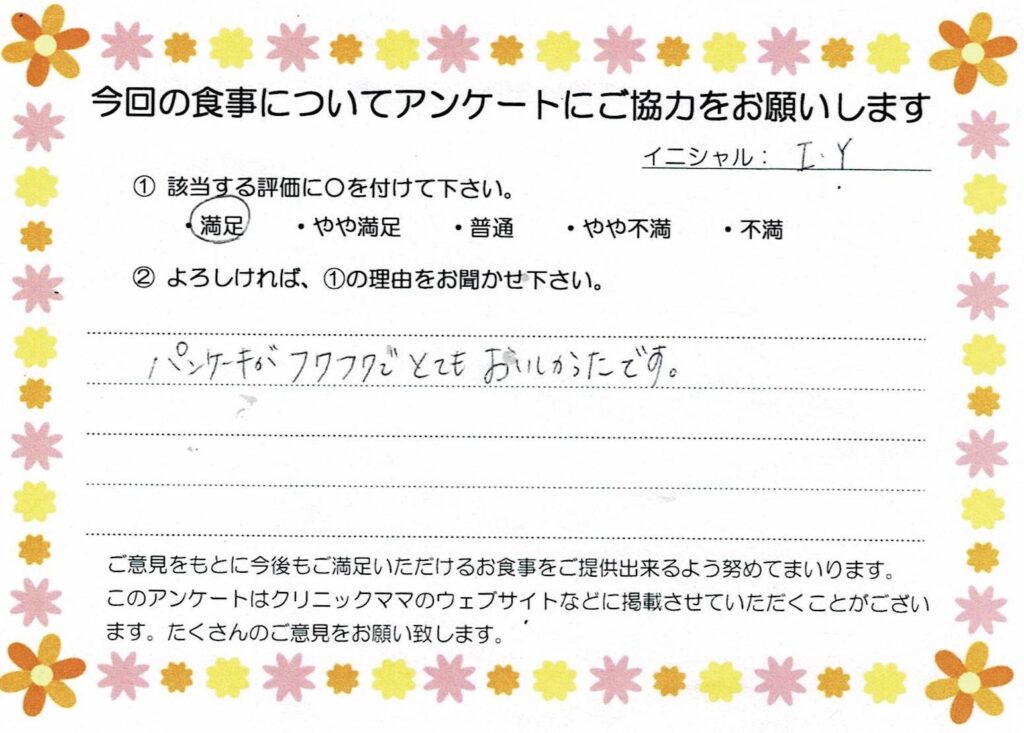 今回の食事についてアンケートにご協力をお願いします
イニシャル： I.Y
① 該当する評価に〇を付けて下さい。
・満足 ・やや満足 ・普通 ・やや不満 ・不満
② よろしければ、①の理由をお聞かせ下さい。
パンケーキがフワフワでとてもおいしかったです。
ご意見をもとに今後もご満足いただけるお食事をご提供出来るよう努めてまいります。
このアンケートはクリニックママのウェブサイトなどに掲載させていただくことがござい
ます。たくさんのご意見をお願い致します。